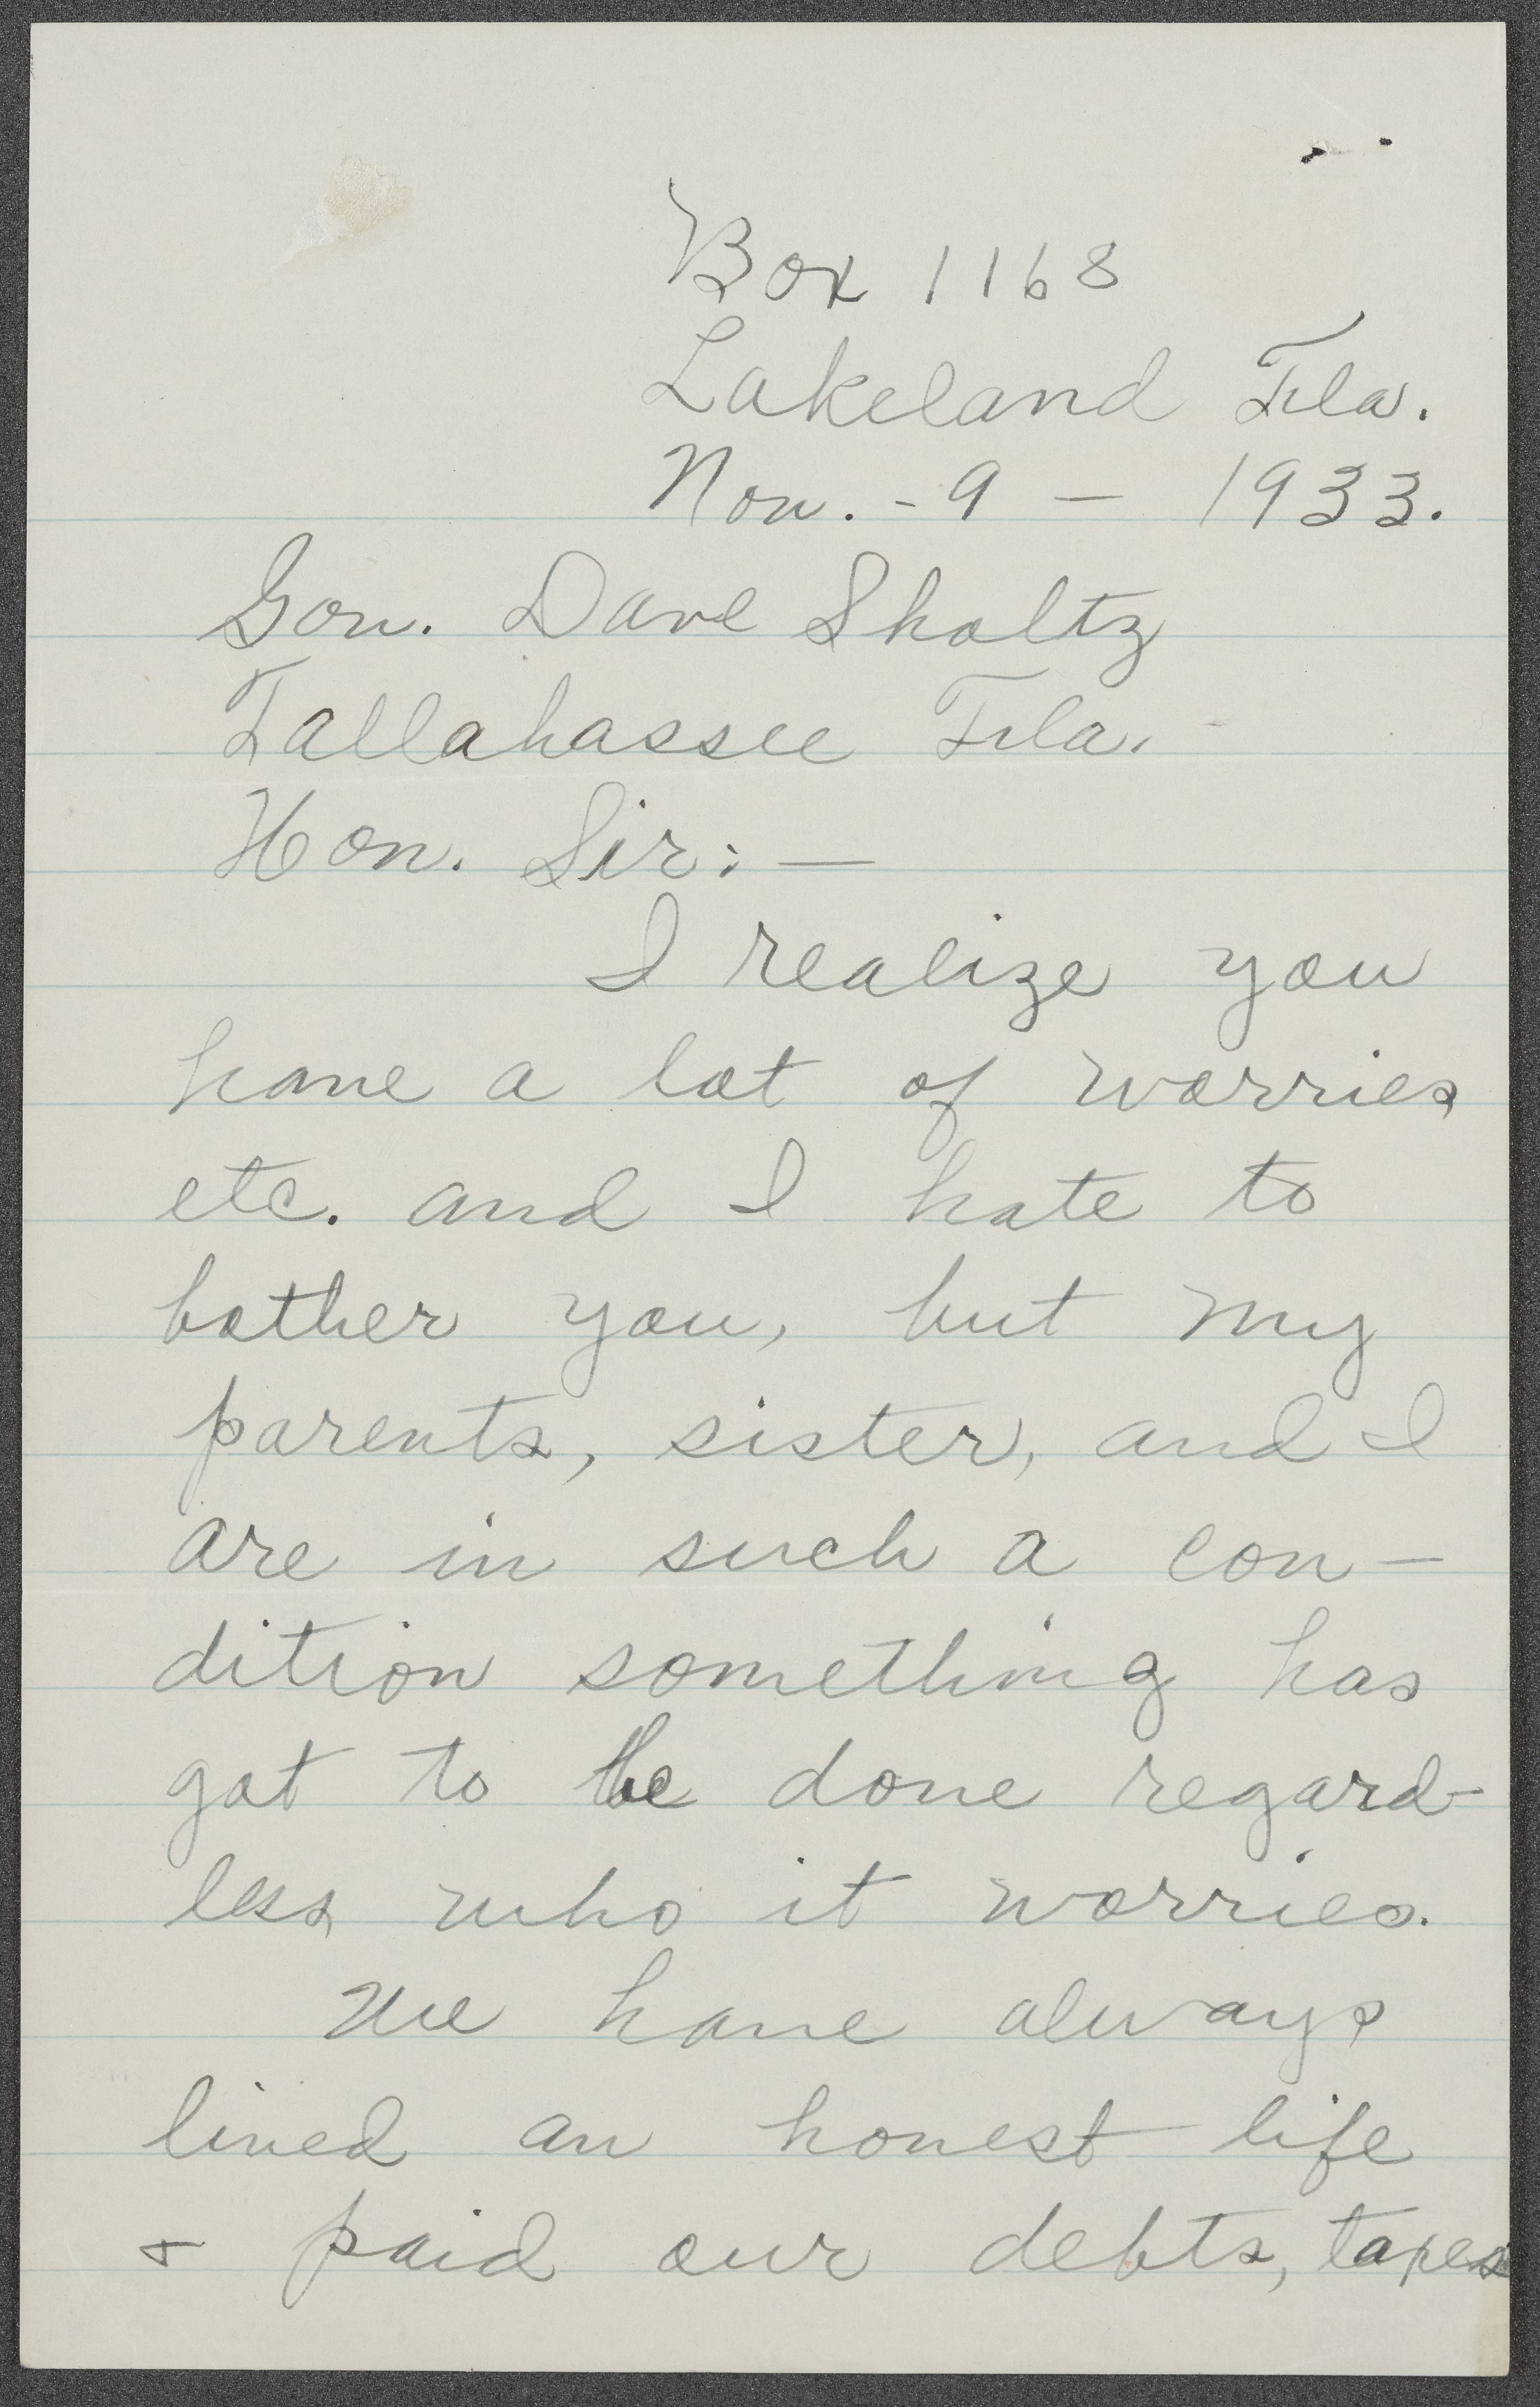 Box 1168
Lakeland Fla.
Nov. - 9 - 1933.
Gov. Dave Sholtz
Tallahassee Fla.
Hon. Sir: —
I realize you
have a lot of worries
etc. and I hate to
bother you, but my
parents, sister, and I
are in such a con-
dition something has
got to be done regard-
less who it worries.
We have always
lived an honest life
& paid our debts, taxes